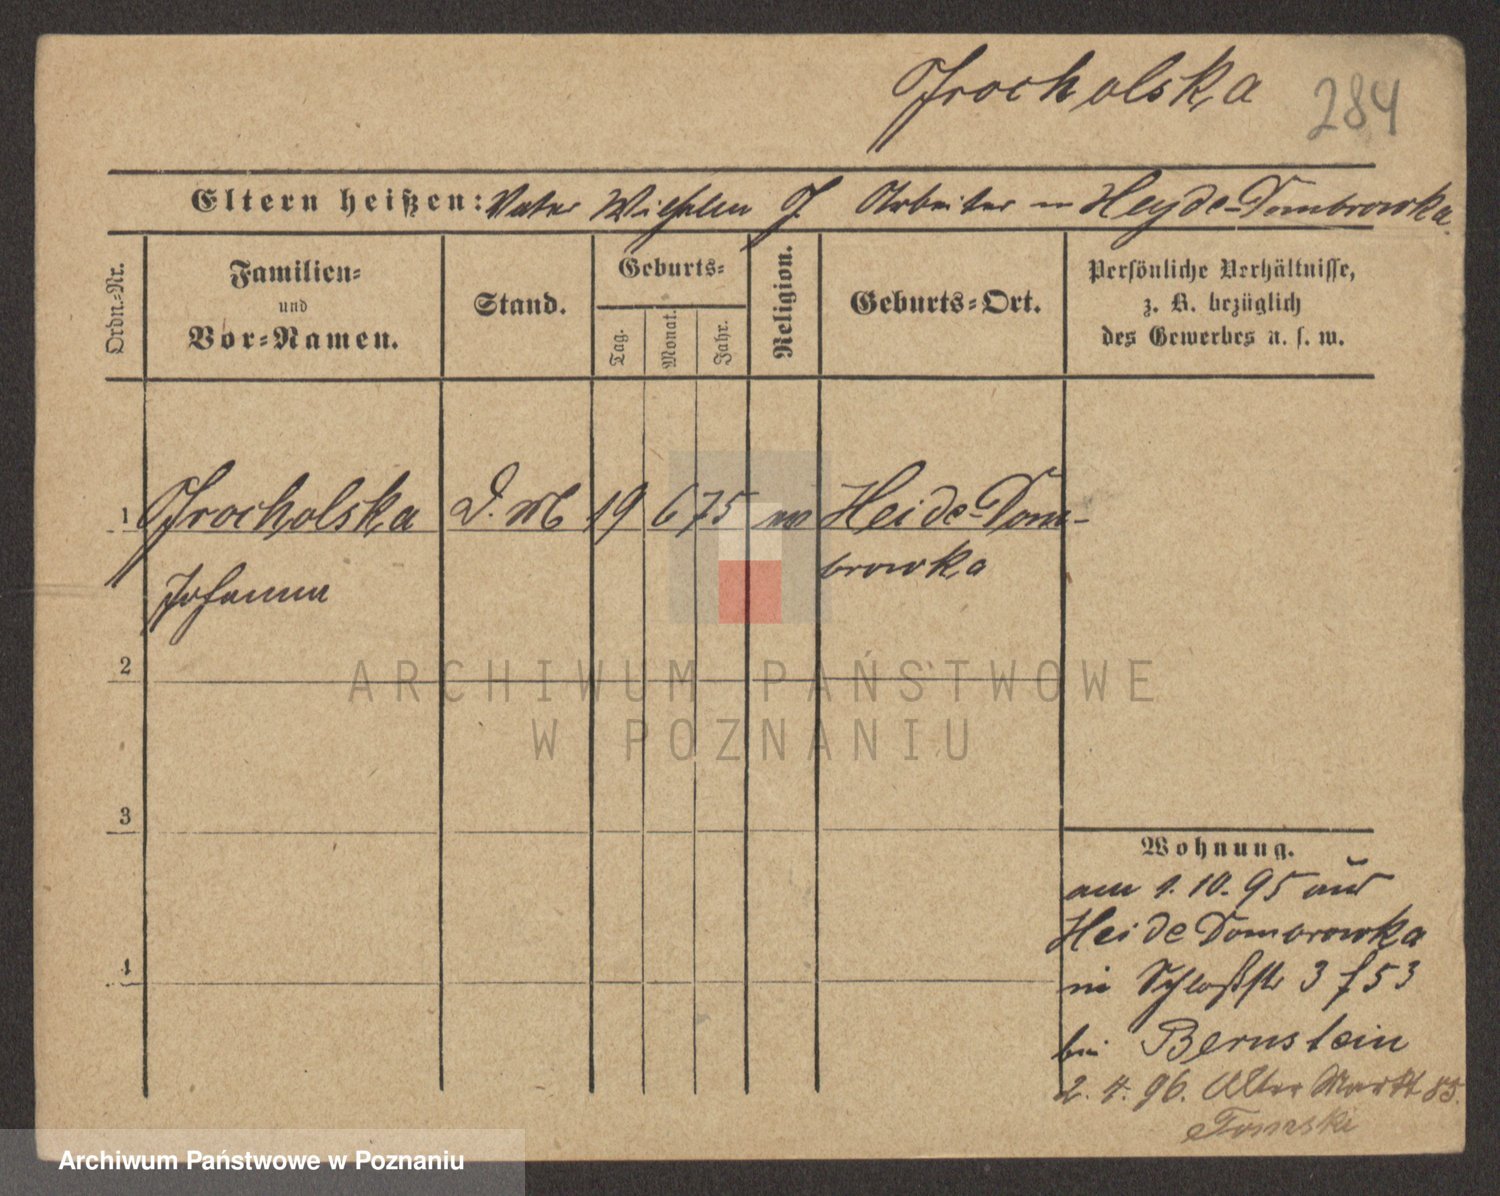 Frocholska 284
Eltern heißen: Vater Wilhelm F. Arbeiter in Heyde-Dombrowka.
Ordn.-Nr.
Familien- und Vor-Namen.
Stand.
Geburts-
Tag.
Monat.
Jahr.
Religion.
Geburts-Ort.
Persönliche Verhältnisse,
z. B. bezüglich
des Gewerbes u. s. w.
1 Frocholska D. M 19 6 75 Heide-Dom-
Johanna browka
2
3
4
Wohnung.
am 1.10.95 aus
Heide Dombrowka
in Schloßstr 3 f 53
bei Bernstein
2. 4. 96. Alter Markt 85.
Tomski
ARCHIWUM PAŃSTWOWE
W POZNANIU
Archiwum Państwowe w Poznaniu